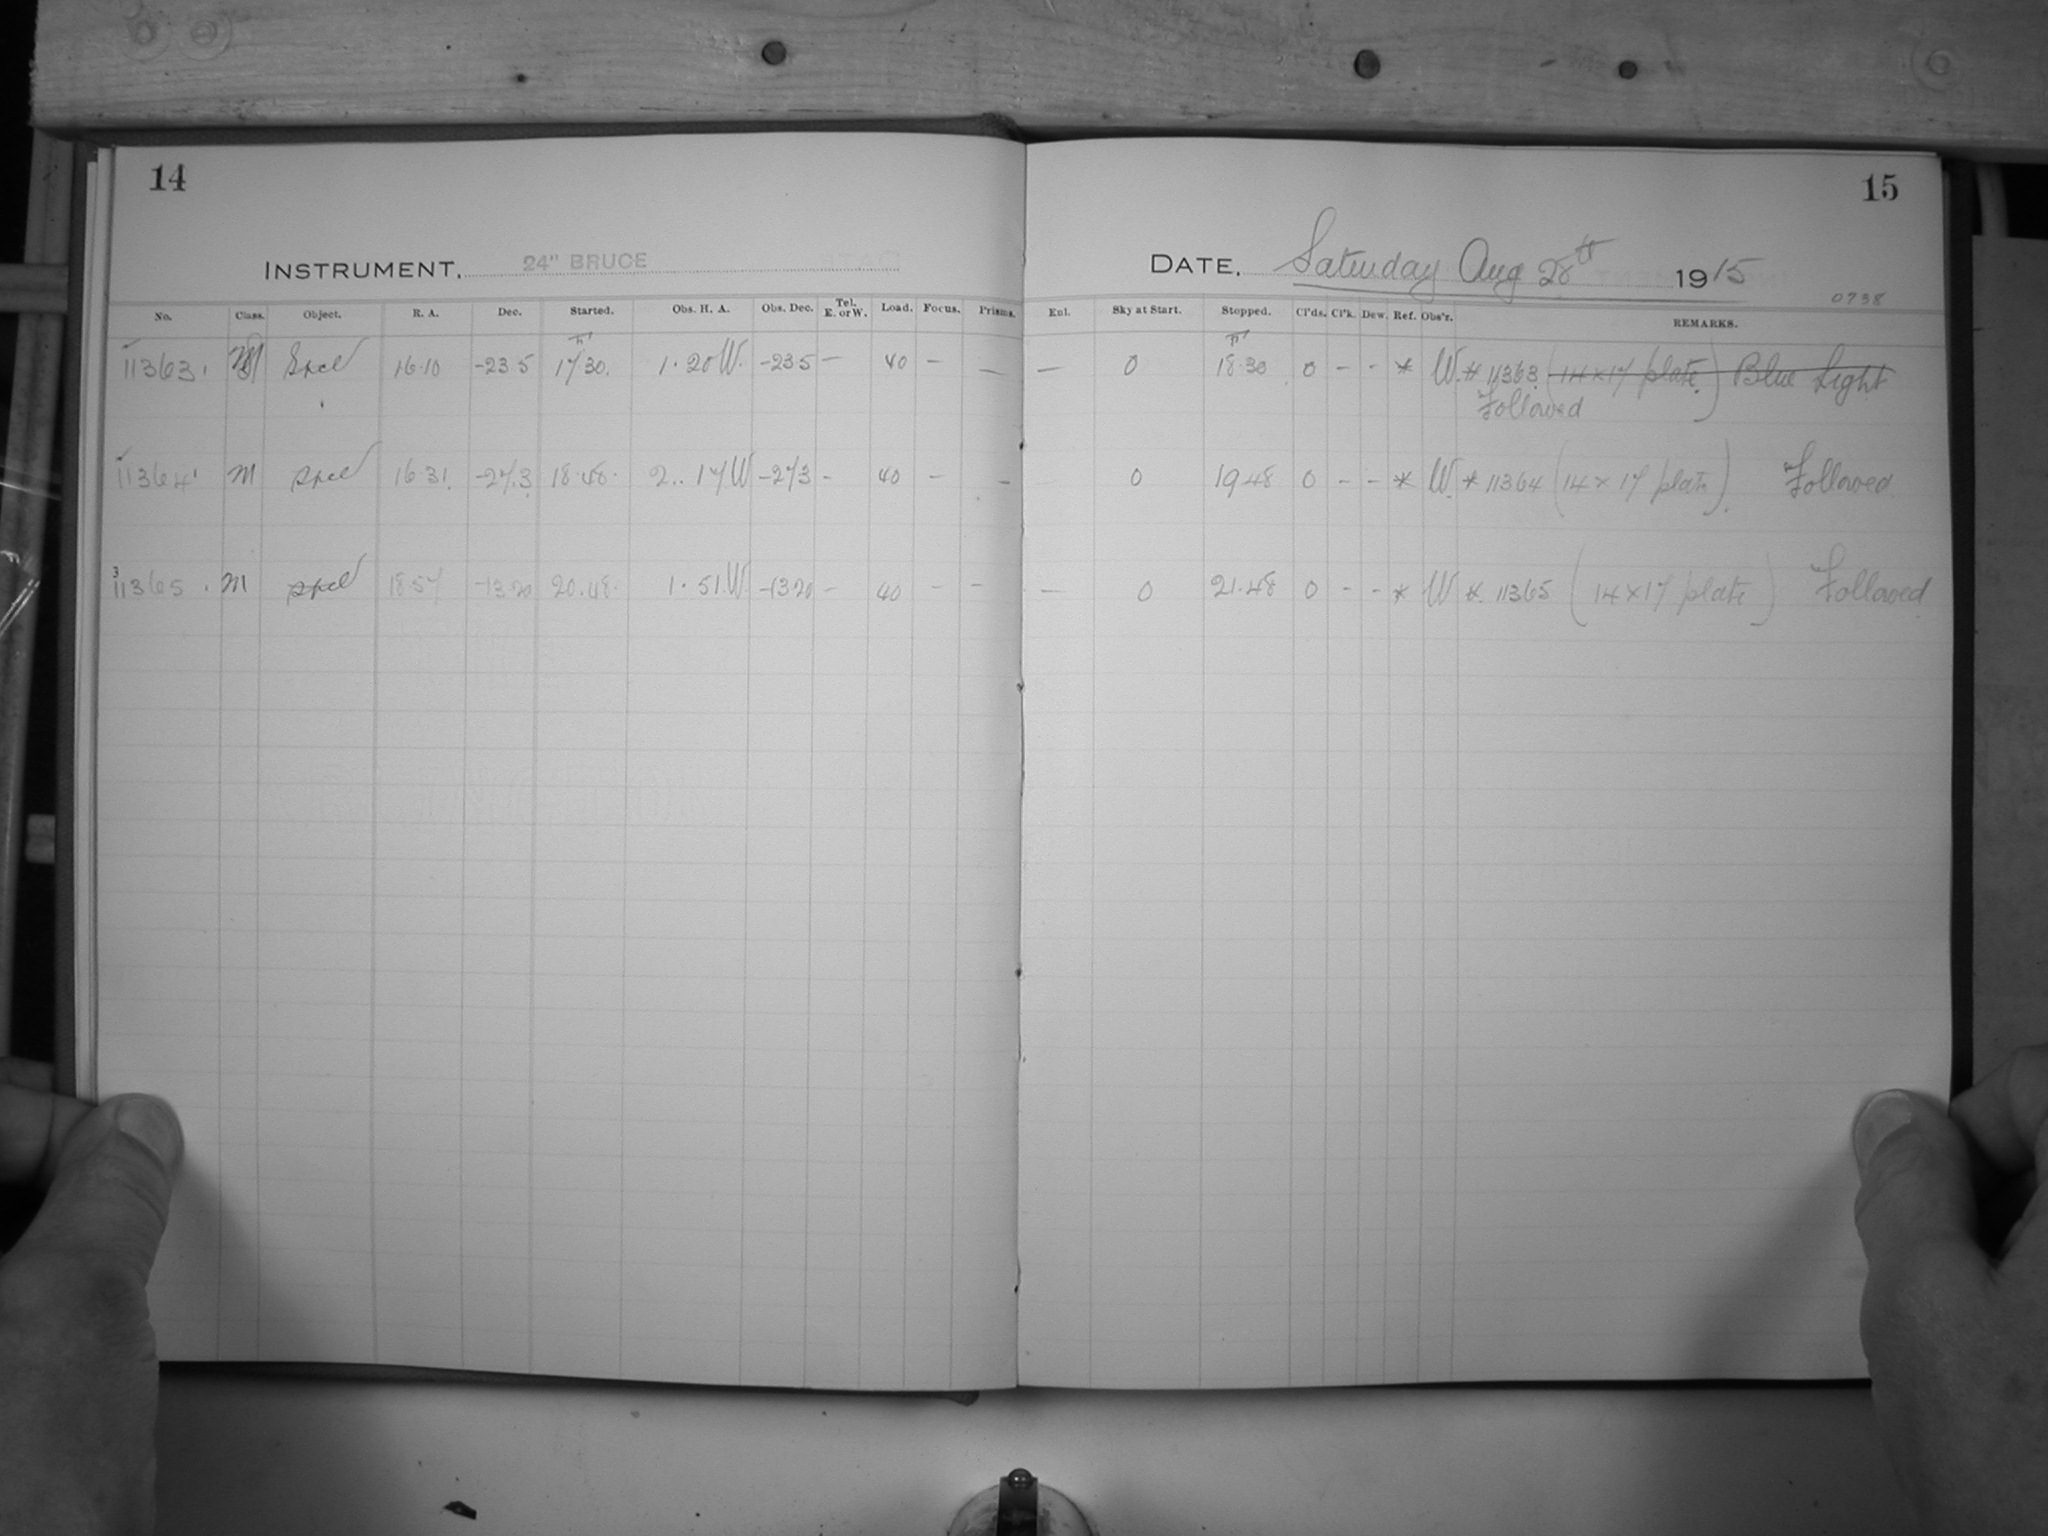 14
INSTRUMENT. 24" BRUCE
No. Class. Object. R. A. Dec. Started. Obs. H. A. Obs. Dec. Tel. E. or W. Load. Focus. Prisms.
11363. Spcl 16.10 -23.5 17.30. 1.20 W. -23.5 — 40 — —
11364 M Spcl 16.31. -27.3 18.48. 2..17 W -27.3 - 40 - -
3
11365. M Spcl 18.57 -13.20 20.48. 1.51.W. -13.20 - 40 - -
15
DATE. Saturday Aug 28th 1915
0738
Enl. Sky at Start. Stopped. Cl'ds. Cl'k. Dew. Ref. Obs'r. REMARKS.
— 0 18.30 0 - - * W. * 11363 (14 x 17 plate.) Blue Light
Followed
0 19.48 0 - - * W. * 11364 (14 x 17 plate). Followed
— 0 21.48 0 - - * W * 11365 (14 x 17 plate) Followed